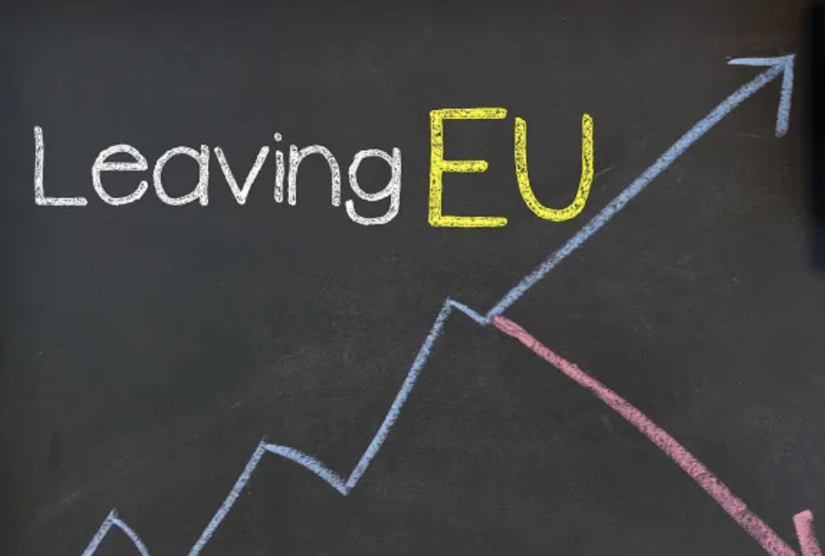 Leaving EU